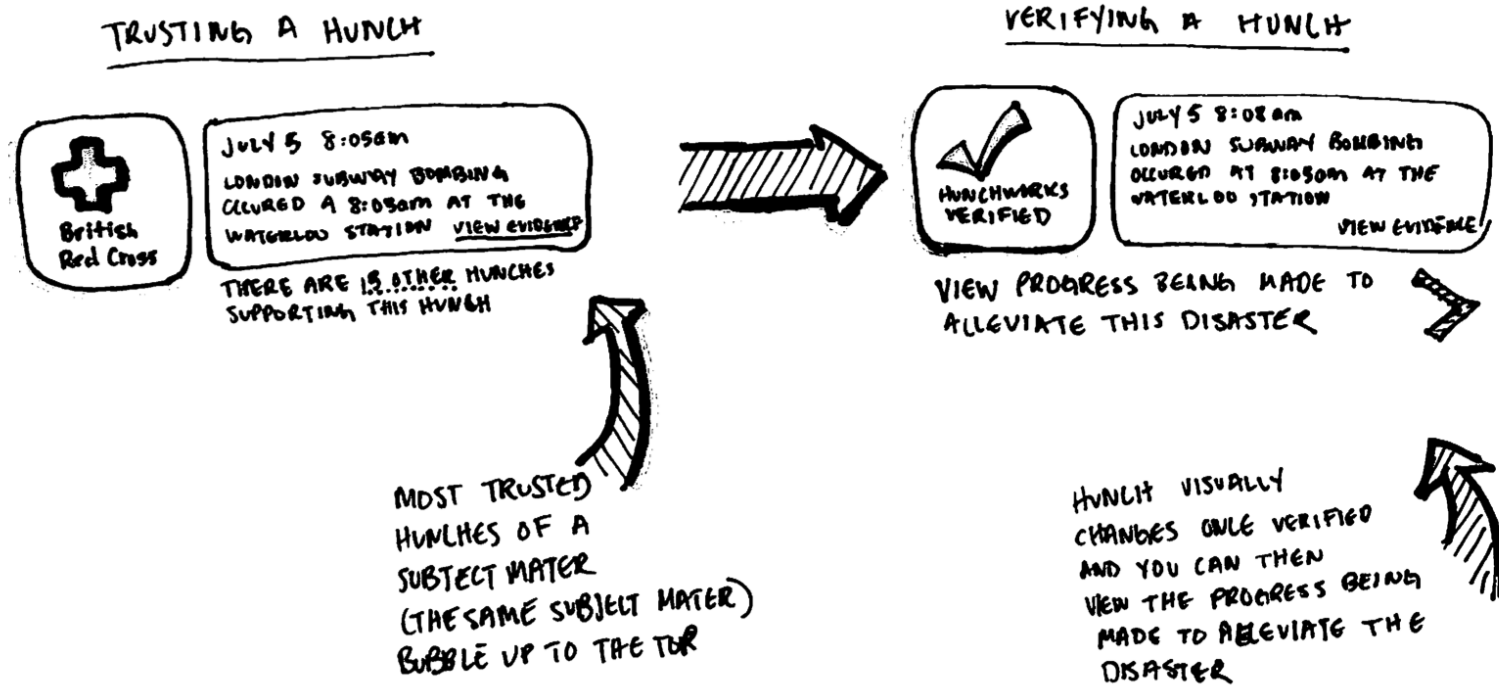 TRUSTING A HUNCH
British
Red Cross
JULY 5 8:05am
LONDON SUBWAY BOMBING
OCCURED A 8:05am AT THE
WATERLOO STATION VIEW EVIDENCE
THERE ARE 15 OTHER HUNCHES
SUPPORTING THIS HUNCH
MOST TRUSTED
HUNCHES OF A
SUBJECT MATER
(THE SAME SUBJECT MATER)
BUBBLE UP TO THE TOP
VERIFYING A HUNCH
HUNCHWORKS
VERIFIED
JULY 5 8:08 am
LONDON SUBWAY BOMBING
OCCURED AT 8:05am AT THE
WATERLOO STATION
VIEW EVIDENCE
VIEW PROGRESS BEING MADE TO
ALLEVIATE THIS DISASTER
HUNCH VISUALLY
CHANGES ONCE VERIFIED
AND YOU CAN THEN
VIEW THE PROGRESS BEING
MADE TO ALLEVIATE THE
DISASTER